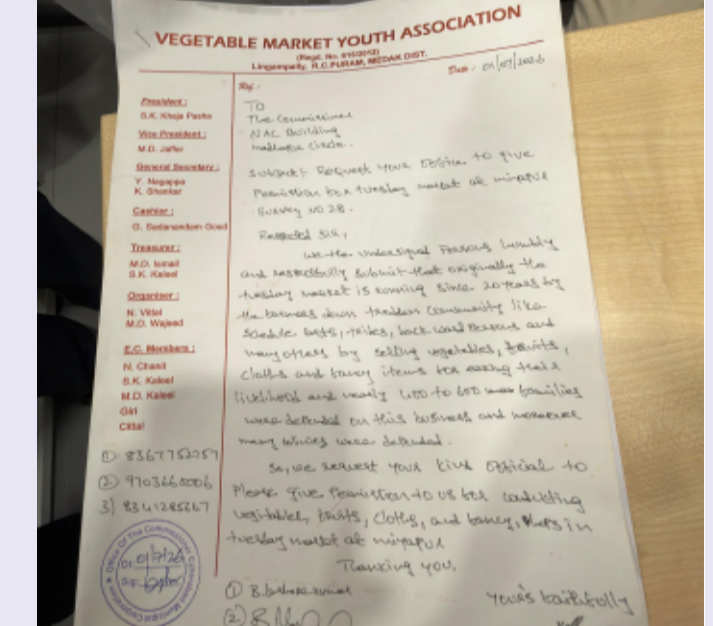 VEGETABLE MARKET YOUTH ASSOCIATION
(Regd. No. 616/2012)
Lingampally, R.C.PURAM, MEDAK DIST.
Ref.:
Date: 01/07/2026
President :
S.K. Khaja Pasha
Vice President :
M.D. Jaffer
General Secretary :
Y. Nagappa
K. Shankar
Cashier :
G. Sadanandam Goud
Treasurer :
M.D. Ismail
S.K. Kaleel
Organiser :
N. Vittal
M.D. Wajeed
E.C. Members :
N. Chanti
S.K. Kaleel
M.D. Kaleel
Giri
Cittal
① 8367752957
② 9703665006
3) 8341285667
Office Of The Commissioner
Municipal Corporation
Dt. 01/7/26
Sig.
TO
The Commissioner
NAC Building
Madhapur Circle.
Subject: Request your Office to give
Permission for tuesday market at miyapur
Survey no 28.
Respected Sir,
We the undersigned Persons humbly
and respectfully submit that originally the
tuesday market is running since 20 years by
the farmers down trodden Community like
Schedule casts, tribes, back ward Persons and
many others by selling vegetables, fruits,
Cloths and fancy items for eaking their
livlihood and nearly 400 to 600 families
were defended on this business and moreover
many were defended.
So, we request your kind Official to
Please give Permission to us for conducting
vegitables, fruits, Cloths, and fancy, in
tuesday market at miyapur
Thanking you.
① B.
②
Your's faithfully